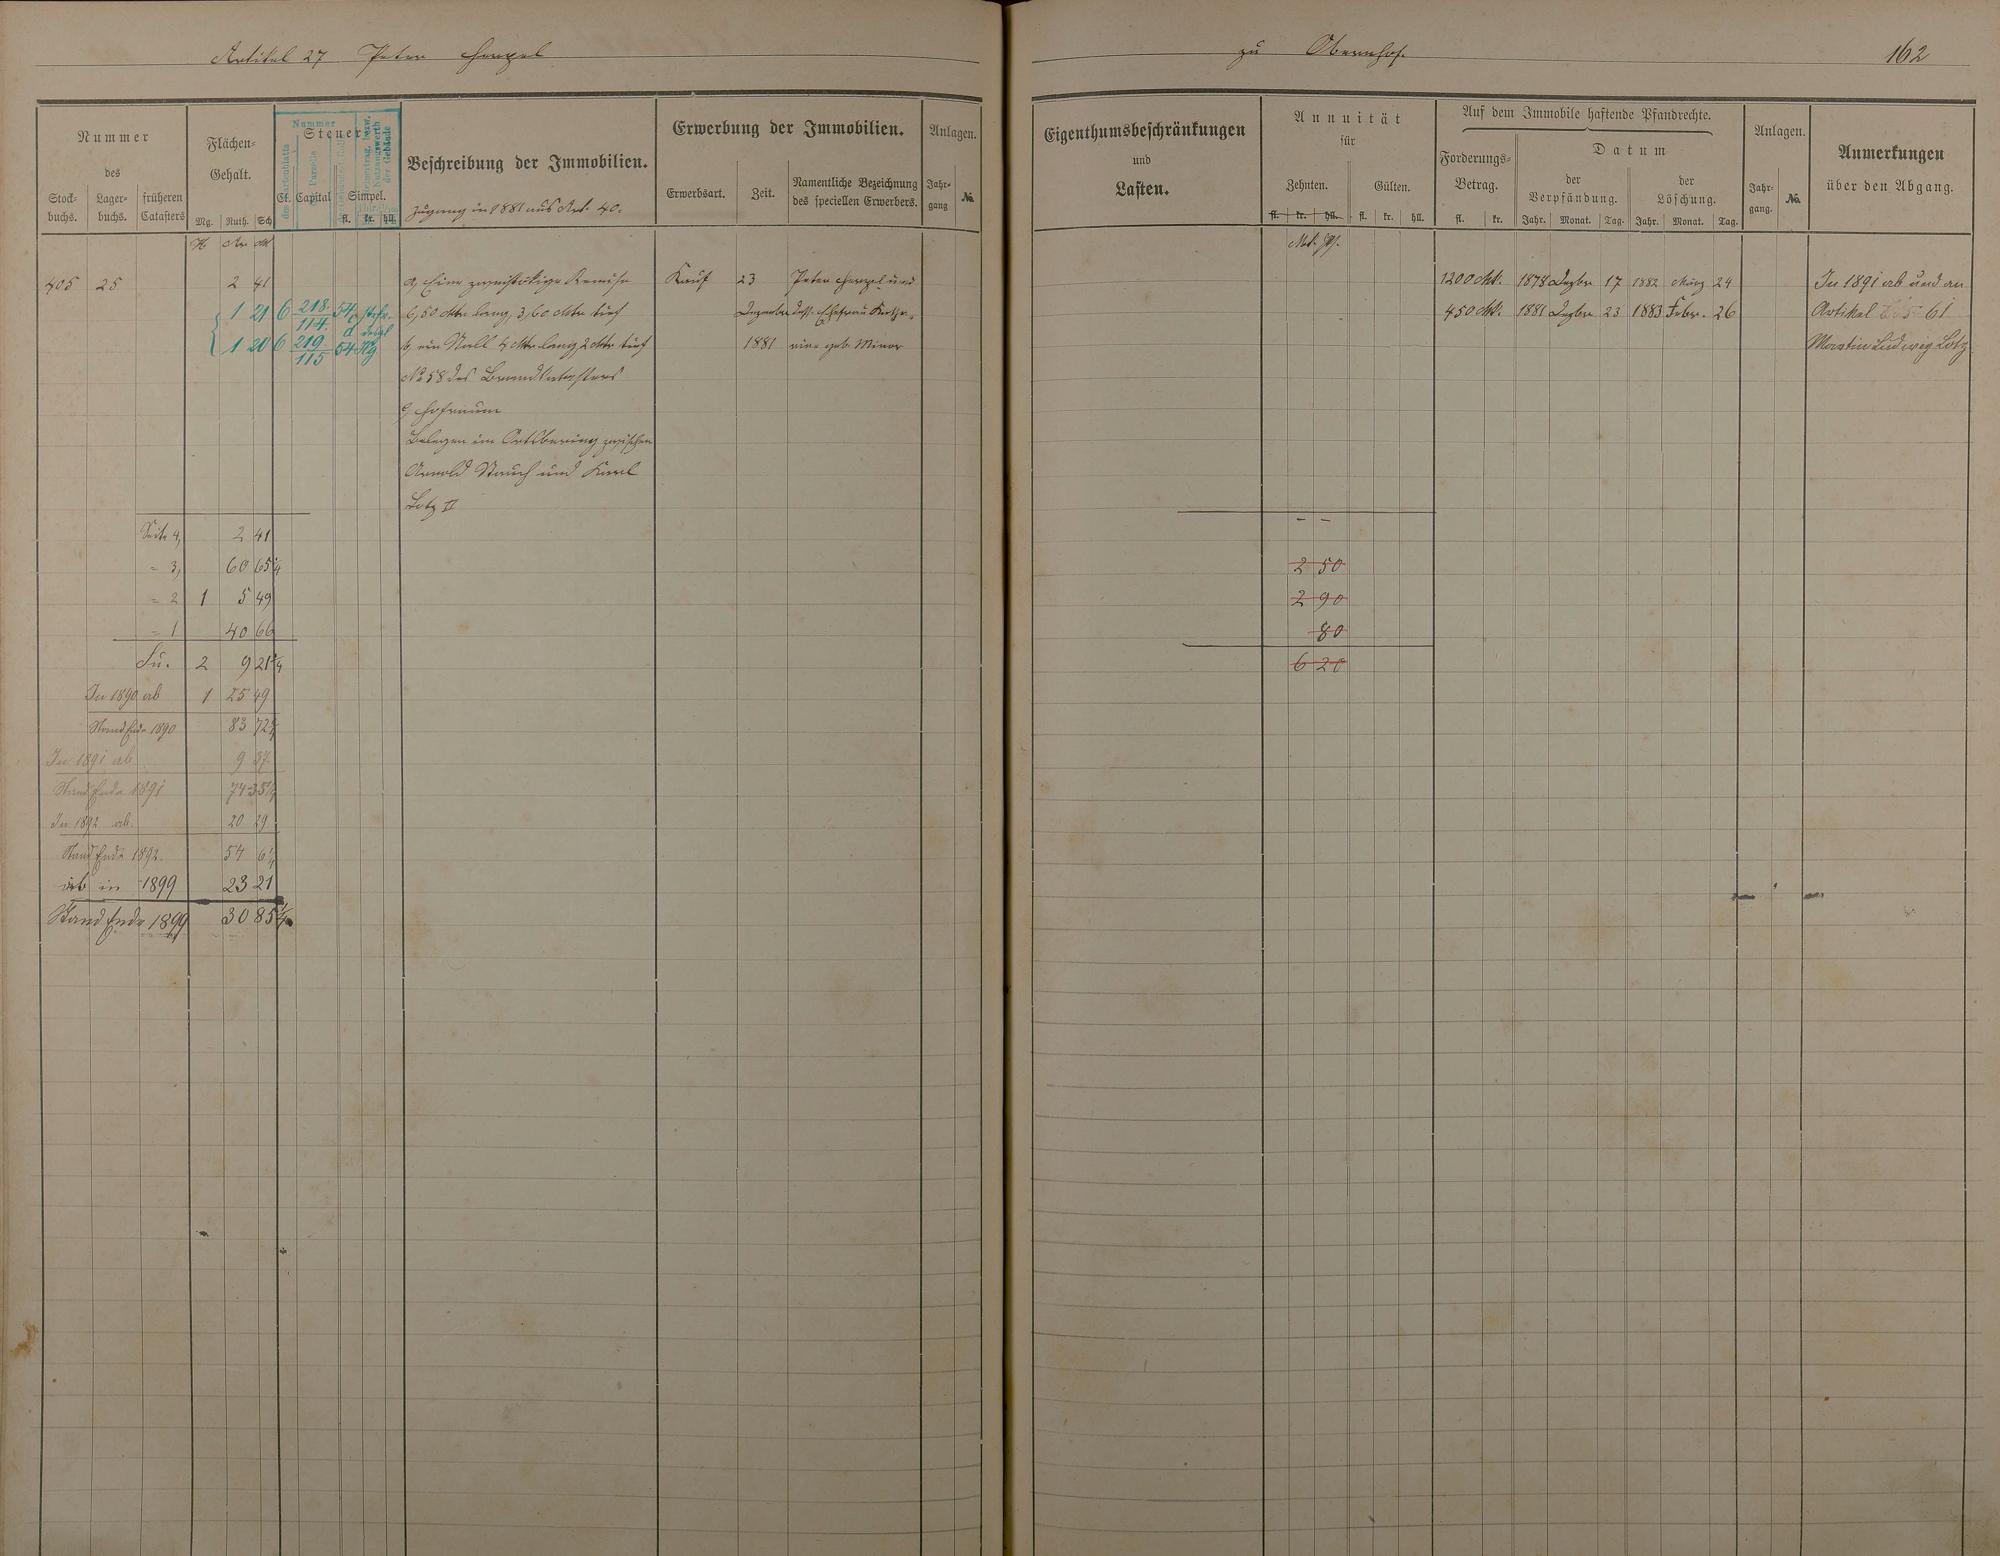 Artikel 27 Peter Henzel
zu Obernhof.
162
Nummer
des
Stock-
buchs.
Lager-
buchs.
früheren
Catasters
Flächen-
Gehalt.
Mg. Ruth. Sch
Steuer
Cl. Capital Simpel.
fl. kr. hll.
Nummer
Parzelle
Nutzungswerth
der Gebäude
Beschreibung der Immobilien.
Zugang in 1881 aus Art. 40.
Erwerbung der Immobilien.
Erwerbsart. Zeit.
Namentliche Bezeichnung
des speciellen Erwerbers.
Anlagen.
Jahr-
gang
No.
Eigenthumsbeschränkungen
und
Lasten.
Annuität
für
Zehnten. Gülten.
fl. kr. hll. fl. kr. hll.
Auf dem Immobile haftende Pfandrechte.
Forderungs-
Betrag.
fl. kr.
Datum
der
Verpfändung.
Jahr. Monat. Tag.
der
Löschung.
Jahr. Monat. Tag.
Anlagen.
Jahr-
gang.
No.
Anmerkungen
über den Abgang.
H Ar M
405 25 2 41
1 21 6 218/114 54
1 20 6 219/115 54
a, Eine zweistökige Remise
6,50 Mtr lang, 3,60 Mtr tief
b, ein Stall 4 Mtr lang 2 Mtr tief
No 58 des Brandkatasters
c, Hofraum
Belegen im Ortsbering zwischen
Arnold Stauch und Karl
Lotz II
Kauf
23
Dezember
1881
Peter Henzel und
dess. Ehefrau Katha-
rine geb. Minor
Mk. Pf.
1200 Mk. 1878 Dezbr 17 1882 März 24
450 Mk. 1881 Dezbr 23 1883 Febr. 26
In 1891 ab und an
Artikel 61
Martin Ludwig Lotz
Seite 4, 2 41 – –
" 3, 60 65 1/4 2 50
" 2 1 5 49 2 90
" 1 40 66 80
Su. 2 9 21 1/4 6 20
In 1890 ab 1 25 49
Stand Ende 1890 83 72 1/4
In 1891 ab 9 37
Stand Ende 1891 74 35 1/4
In 1892 ab. 20 29
Stand Ende 1892. 54 6 1/4
ab in 1899 23 21
Stand Ende 1899 30 85 1/4